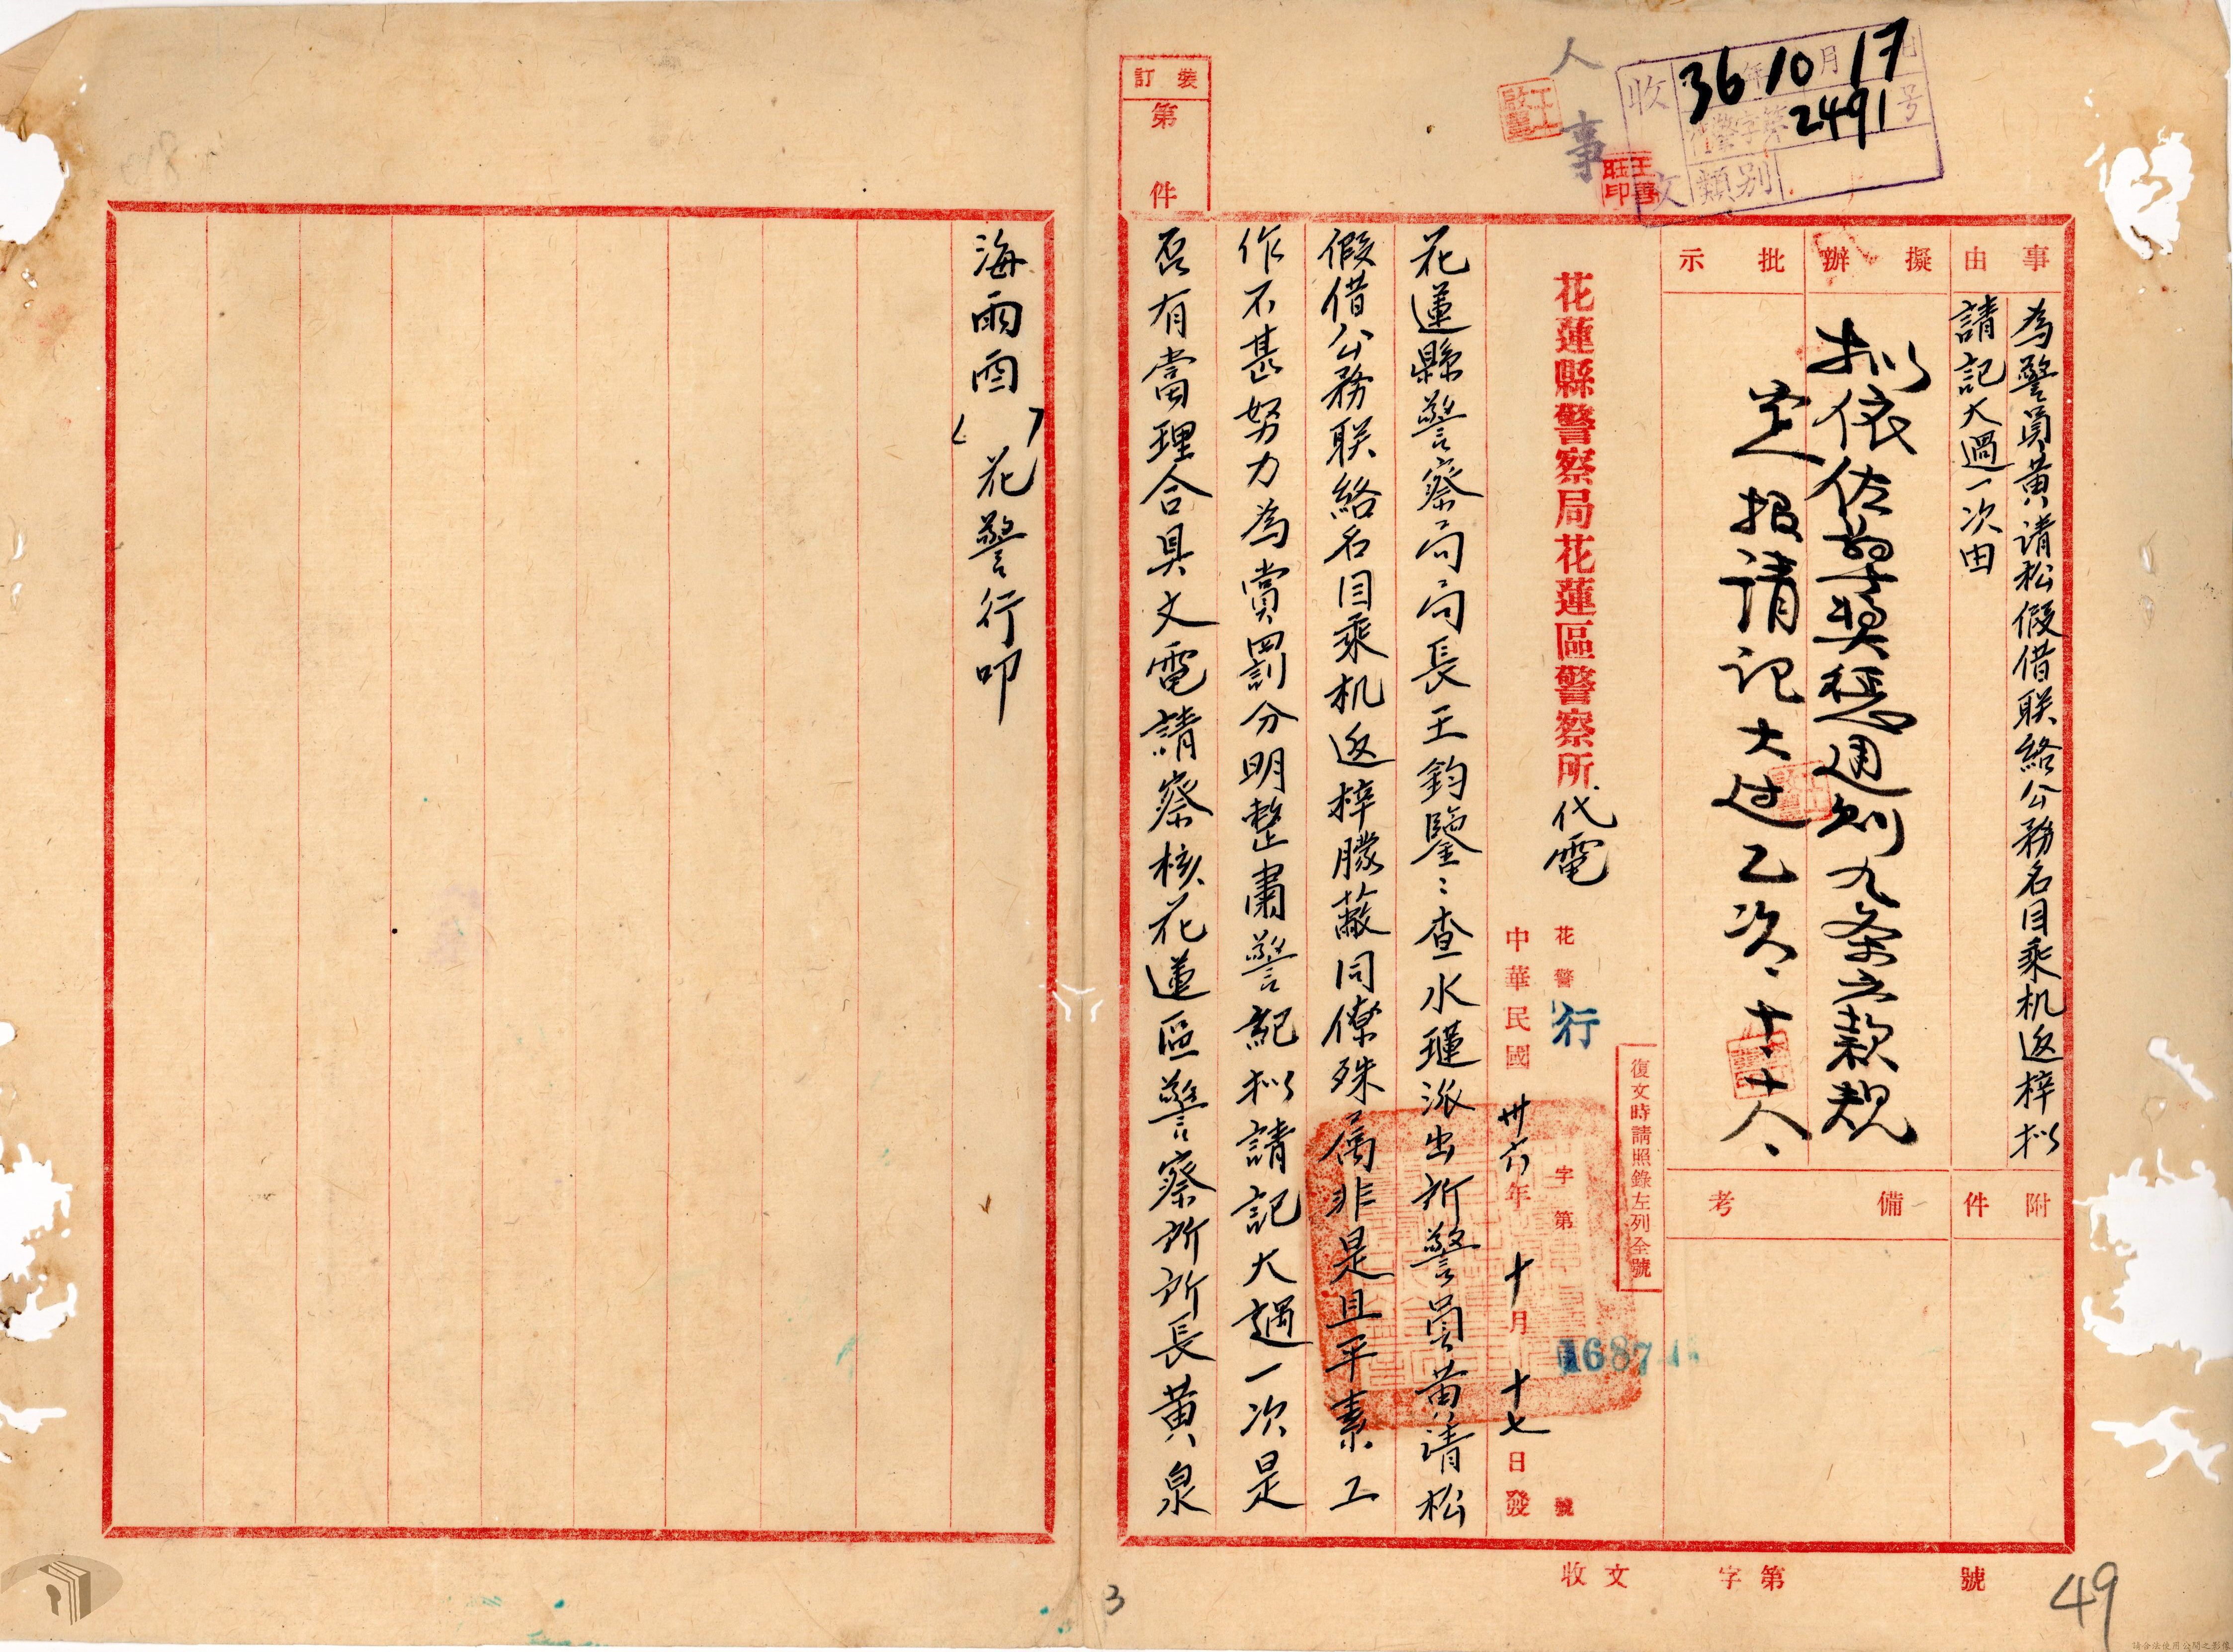 人事
收文
36年10月17日
花警字第2491号
類別
裝訂
第 件
事由
為警員黃清松假借联絡公務名目乘机返梓拟
請記大過一次由
擬辦
拟依佐警奬懲通則九条六款規
定报请记大过乙次、十、十八、
批示
附件
備考
復文時請照錄左列全號
花蓮縣警察局花蓮區警察所代電
花警行字第16874號
中華民國卅六年十月十七日發
花蓮縣警察局局長王鈞鑒:查水璉派出所警員黃清松
假借公務联絡名目乘机返梓朦蔽同僚殊屬非是且平素工
作不甚努力為賞罰分明整肅警紀拟請記大過一次是
否有當理合具文電請察核花蓮區警察所所長黃泉
海雨酉( )花警行叩
收文 字第 號
3
49
請合法使用公開之影像